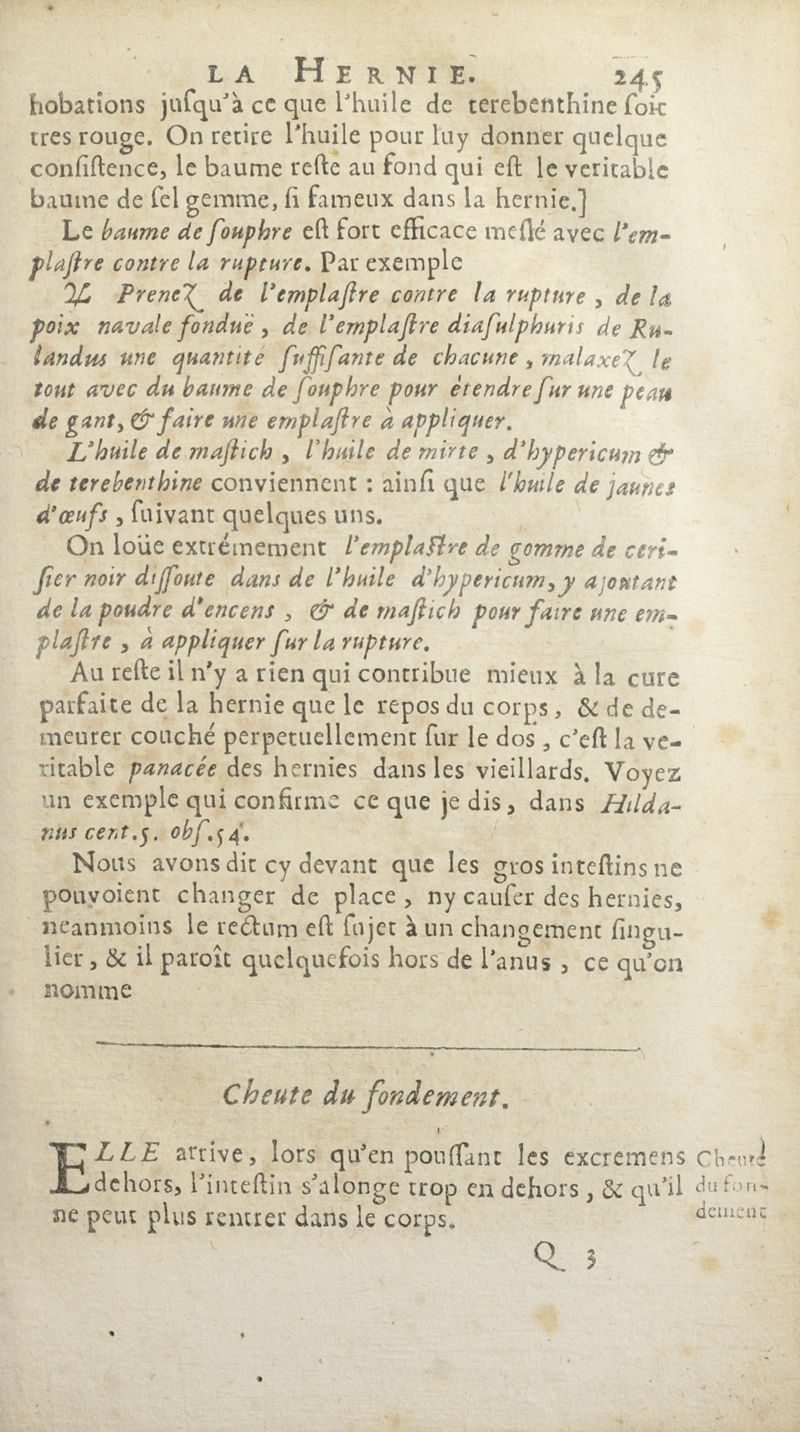 LA HERNIE. 245
hobations juſqu'à ce que l'huile de terebenthine ſoit
tres rouge. On retire l'huile pour luy donner quelque
conſiſtence, le baume reſte au fond qui eſt le veritable
baume de ſel gemme, ſi fameux dans la hernie.]
Le baume de ſouphre eſt fort efficace meſlé avec l'em-
plaſtre contre la rupture. Par exemple
℞ Prenez de l'emplaſtre contre la rupture, de la
poix navale fonduë, de l'emplaſtre diaſulphuris de Ru-
landus une quantité ſuffiſante de chacune, malaxez le
tout avec du baume de ſouphre pour étendre ſur une peau
de gant, & faire une emplaſtre à appliquer.
L'huile de maſtich, l'huile de mirte, d'hypericum &
de terebenthine conviennent : ainſi que l'huile de jaunes
d'œufs, ſuivant quelques uns.
On loüe extrémement l'emplaſtre de gomme de ceri-
ſier noir diſſoute dans de l'huile d'hypericum, y ajoutant
de la poudre d'encens, & de maſtich pour faire une em-
plaſtre, à appliquer ſur la rupture.
Au reſte il n'y a rien qui contribue mieux à la cure
parfaite de la hernie que le repos du corps, & de de-
meurer couché perpetuellement ſur le dos, c'eſt la ve-
ritable panacée des hernies dans les vieillards. Voyez
un exemple qui confirme ce que je dis, dans Hilda-
nus cent.5. obſ.54.
Nous avons dit cy devant que les gros inteſtins ne
pouvoient changer de place, ny cauſer des hernies,
neanmoins le rectum eſt ſujet à un changement ſingu-
lier, & il paroît quelquefois hors de l'anus, ce qu'on
nomme
Cheute du fondement.
ELLE arrive, lors qu'en pouſſant les excremens
dehors, l'inteſtin s'alonge trop en dehors, & qu'il
ne peut plus rentrer dans le corps.
Cheute
du fon-
dement
Q 3